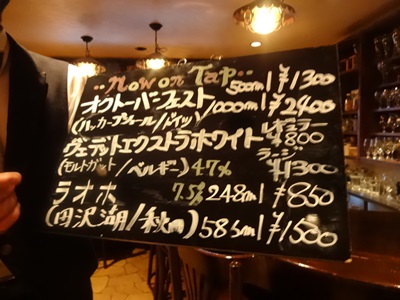 ..Now on Tap.. 500ml ¥1300
オクトーバーフェスト 1000ml ¥2400
(ハッカープショール/ドイツ)
ヴェデットエクストラホワイト レギュラー ¥800
(モルトガット/ベルギー) 4.7% ラージ ¥1300
ラオホ 7.5% 248ml ¥850
(田沢湖/秋田) 585ml ¥1500